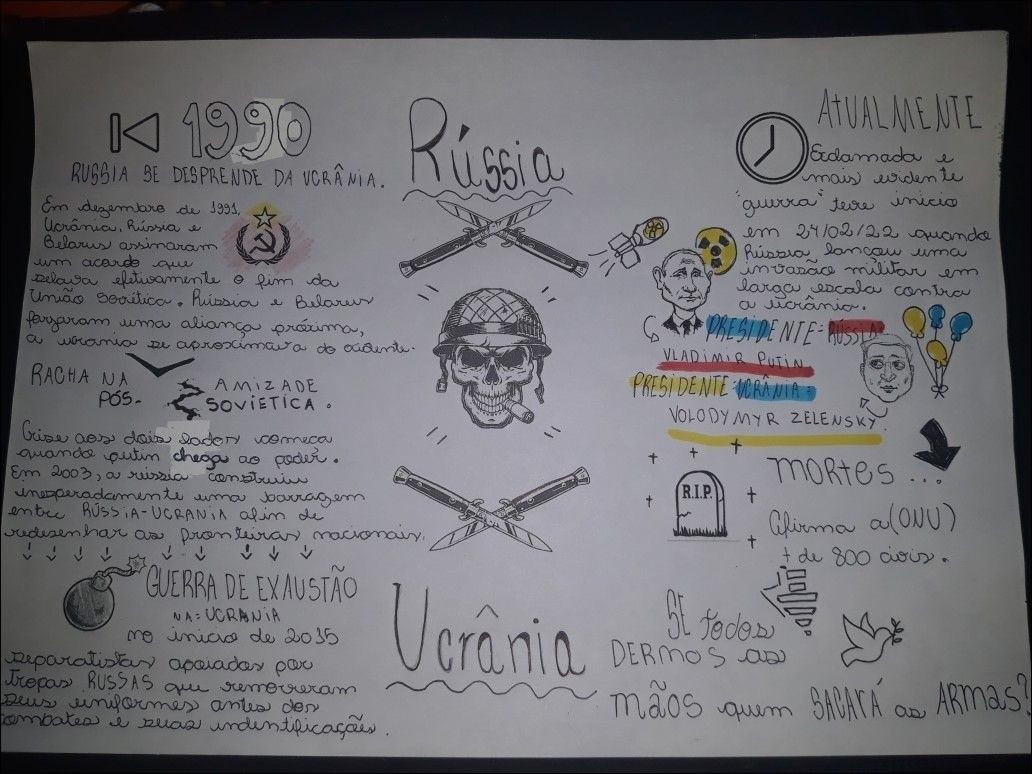 1990
RUSSIA SE DESPRENDE DA UCRÂNIA.
Em dezembro de 1991,
Ucrânia, Rússia e
Belarus assinaram
um acordo que
selava efetivamente o fim da
União Soviética. Rússia e Belarus
forjaram uma aliança próxima,
a ucrania se aproximava do ocidente.
RACHA NA
PÓS.
AMIZADE
SOVIETICA.
Crise aos dois lados começa
quando putin chega ao poder.
Em 2003, a rússia construiu
inesperadamente uma barragem
entre RÚSSIA-UCRANIA afim de
redesenhar as fronteiras nacionais.
GUERRA DE EXAUSTÃO
NA=UCRANIA
no inicio de 2015
separatistas apoiados por
tropas RUSSAS que removeram
seus uniformes antes dos
combates e suas indentificações.
Rússia
Ucrânia
ATUALMENTE
Exclamada e
mais evidente
"guerra" teve início
em 24/02/22 quando
Rússia lançou uma
invasão militar em
larga escala contra
a ucrânia.
PRESIDENTE=RÚSSIA=
VLADIMIR PUTIN
PRESIDENTE=UCRÂNIA=
VOLODYMYR ZELENSKY.
MORTES...
R.I.P.
Afirma a(ONU)
+ de 800 civis.
SE todos
DERMOS as
mãos quem SACARÁ as ARMAS?